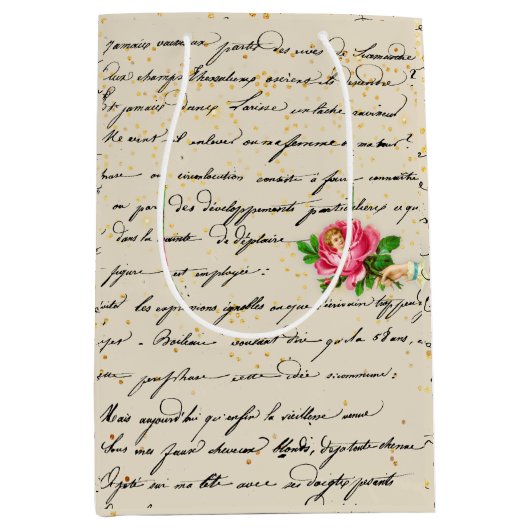 jamais vaisseaux partis des rives de Scamandre
Aux champs Thessaliens osèrent-ils descendre
Et jamais dans Larisse un lâche ravisseur
Me vint il enlever ou ma femme ou ma sœur?
hase ou circonlocution consiste à faire connaître
ou par des développements particuliers ce qu
dans la crainte de déplaire
figure est employée:
viter les expressions ignobles ou que l'écrivain trop peu
jet - Boileau voulant dire qu'il a 58 ans,
périphrase cette idée si commune:
Mais aujourd'hui qu'enfin la vieillesse venue
Sous mes faux cheveux blonds, déjà toute chenue
jeté sur ma tête avec ses doigts pesants